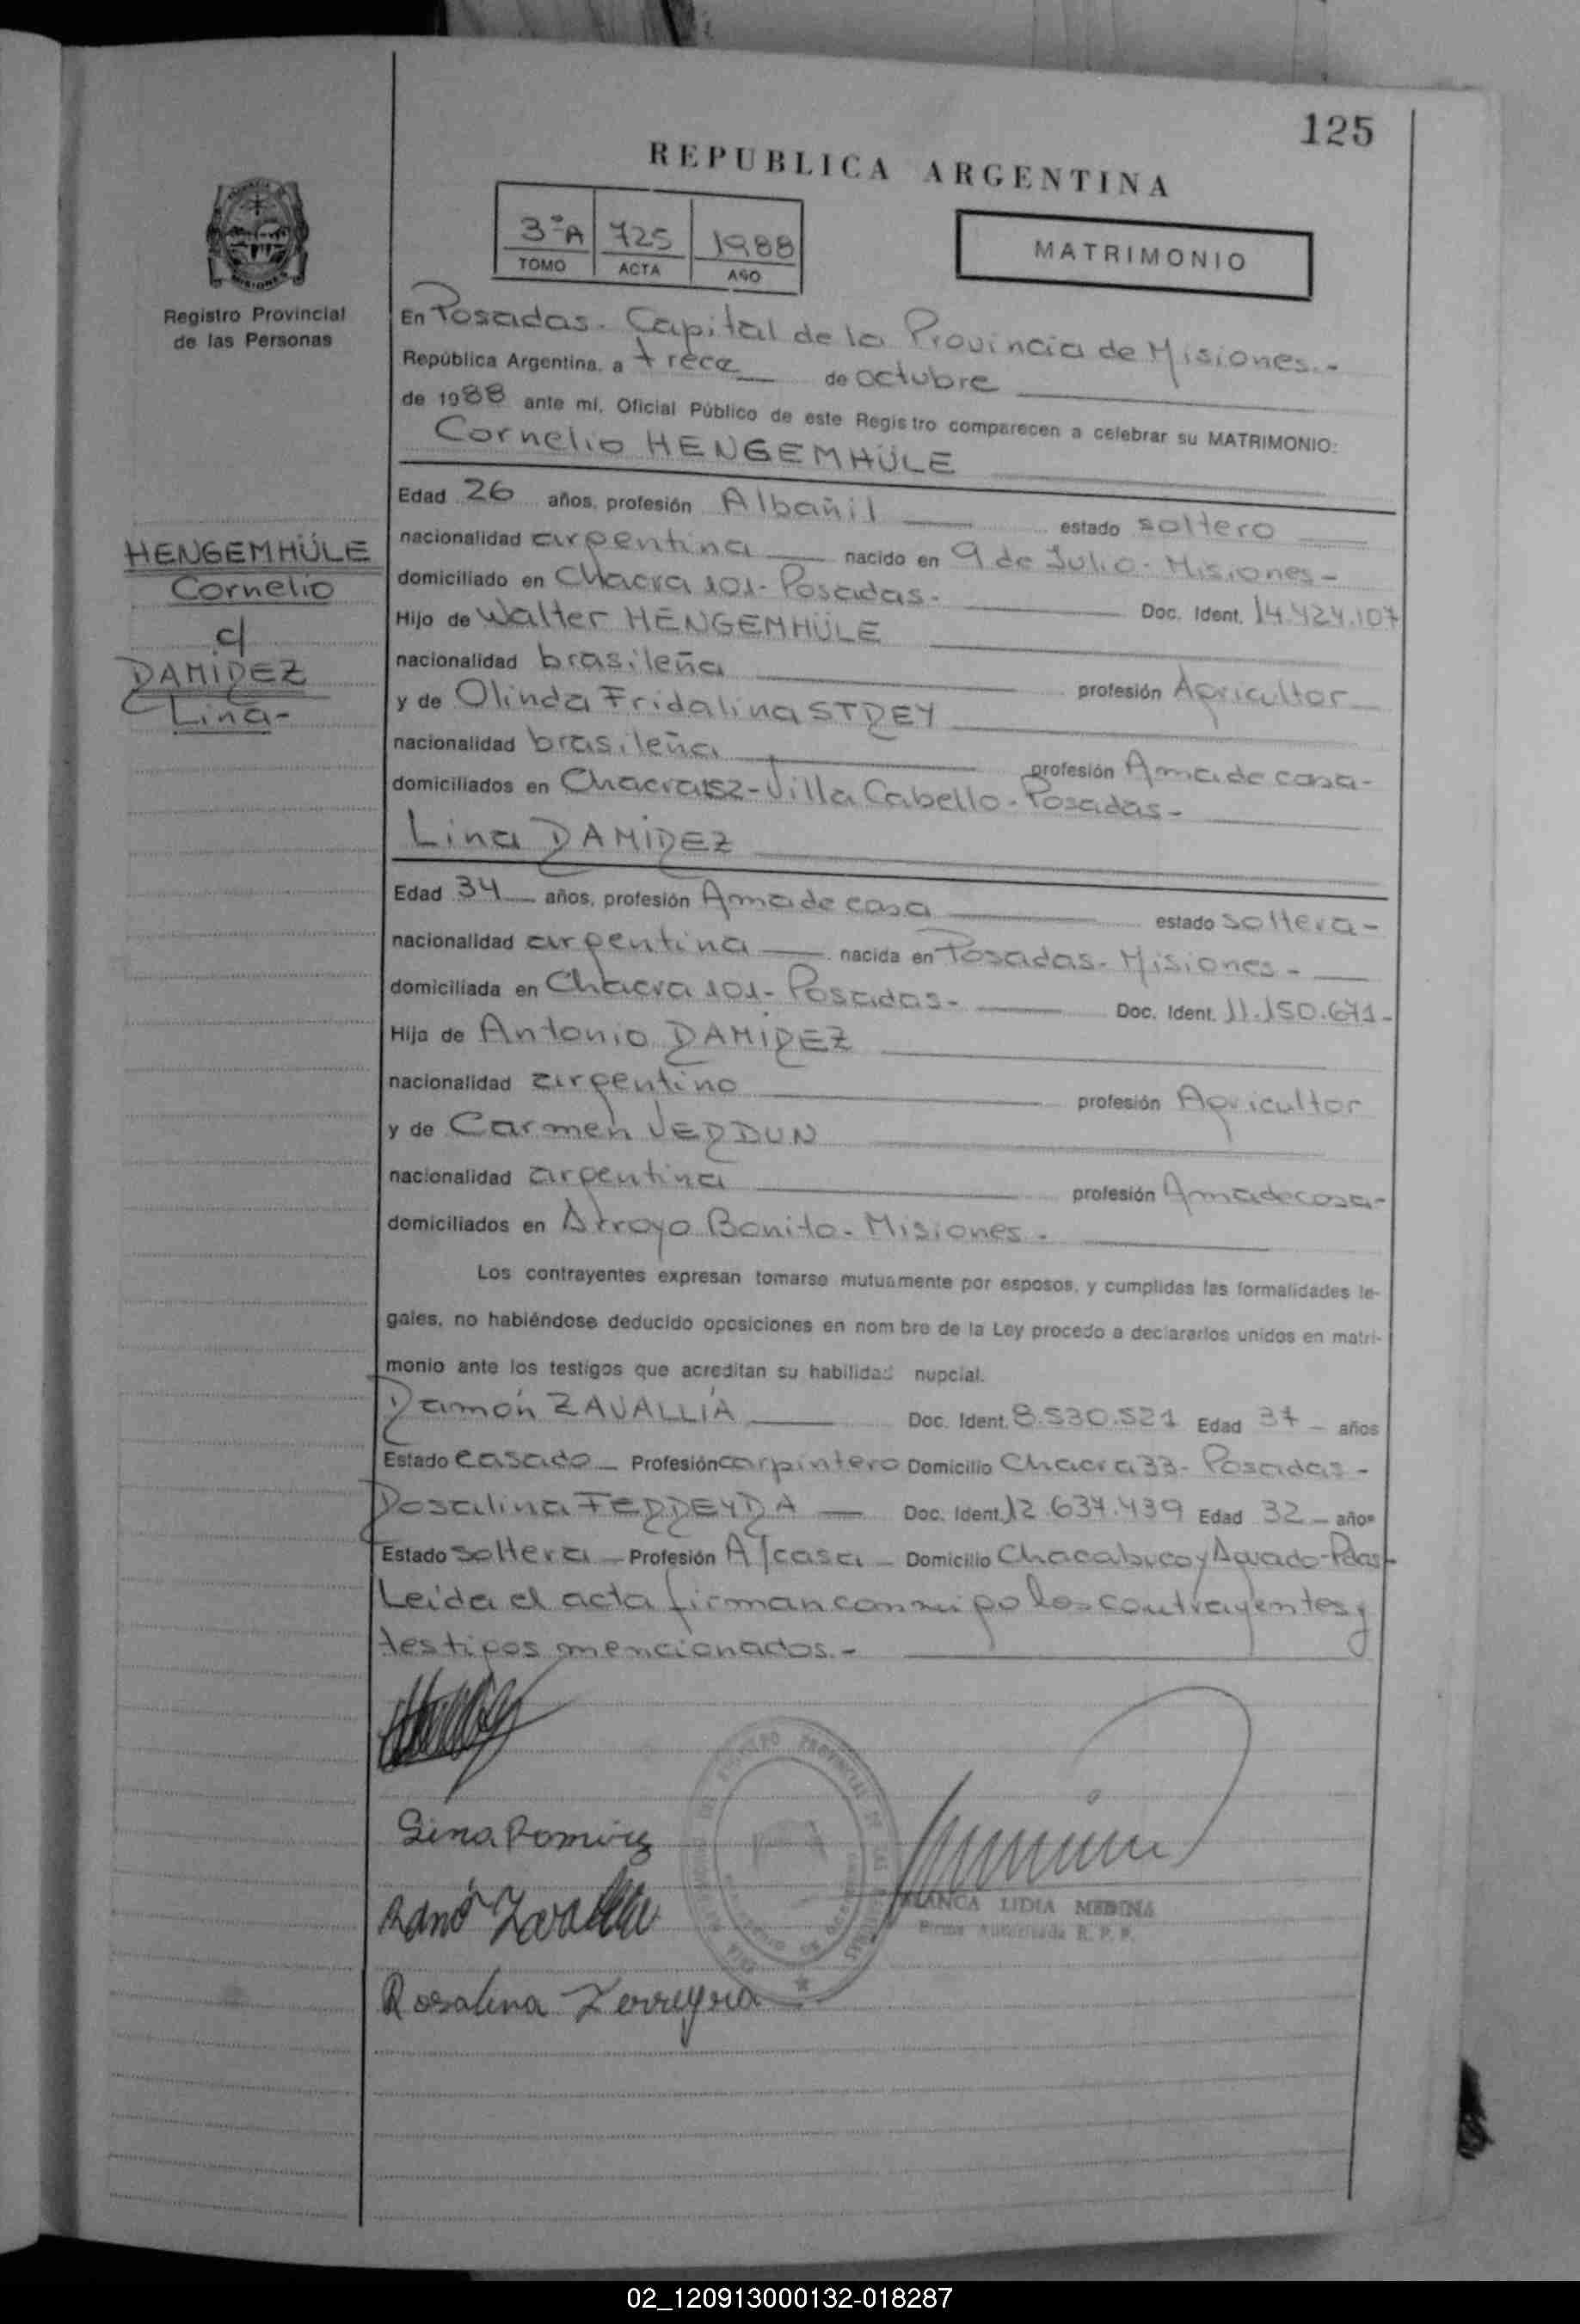 125
REPUBLICA ARGENTINA
3ºA 725 1988
TOMO ACTA AÑO
MATRIMONIO
Registro Provincial
de las Personas
HENGEMHÜLE
Cornelio
c/
RAMIREZ
Lina-
En Posadas. Capital de la Provincia de Misiones.-
República Argentina, a trece de octubre
de 1988 ante mí, Oficial Público de este Registro comparecen a celebrar su MATRIMONIO:
Cornelio HENGEMHÜLE
Edad 26 años, profesión Albañil estado soltero
nacionalidad argentina nacido en 9 de Julio- Misiones-
domiciliado en Chacra 101- Posadas- Doc. Ident. 14.424.107
Hijo de Walter HENGEMHÜLE
nacionalidad brasileña profesión Agricultor
y de Olinda Fridalina STREY
nacionalidad brasileña profesión Ama de casa-
domiciliados en Chacra 152-Villa Cabello-Posadas-
Lina RAMIREZ
Edad 34 años, profesión Ama de casa estado soltera-
nacionalidad argentina nacida en Posadas- Misiones-
domiciliada en Chacra 101- Posadas- Doc. Ident. 11.150.671-
Hija de Antonio RAMIREZ
nacionalidad argentino profesión Agricultor
y de Carmen VERDUN
nacionalidad argentina profesión Ama de casa-
domiciliados en Arroyo Bonito- Misiones-
Los contrayentes expresan tomarse mutuamente por esposos, y cumplidas las formalidades le-
gales, no habiéndose deducido oposiciones en nombre de la Ley procedo a declararlos unidos en matri-
monio ante los testigos que acreditan su habilidad nupcial.
Ramón ZAVALLÍA Doc. Ident. 8.530.521 Edad 37 años
Estado casado Profesión carpintero Domicilio Chacra 33- Posadas-
Rosalina FERREYRA Doc. Ident. 12.637.439 Edad 32 años
Estado soltera Profesión A/casa Domicilio Chacabuco y Aguado-Pdas-
Leída el acta firman conmigo los contrayentes y
testigos mencionados.-
Lina Ramirez
Ramó Zavallia
Rosalina Ferreyra
BLANCA LIDIA MEDINA
Firma Autorizada R. P. P.
02_120913000132-018287